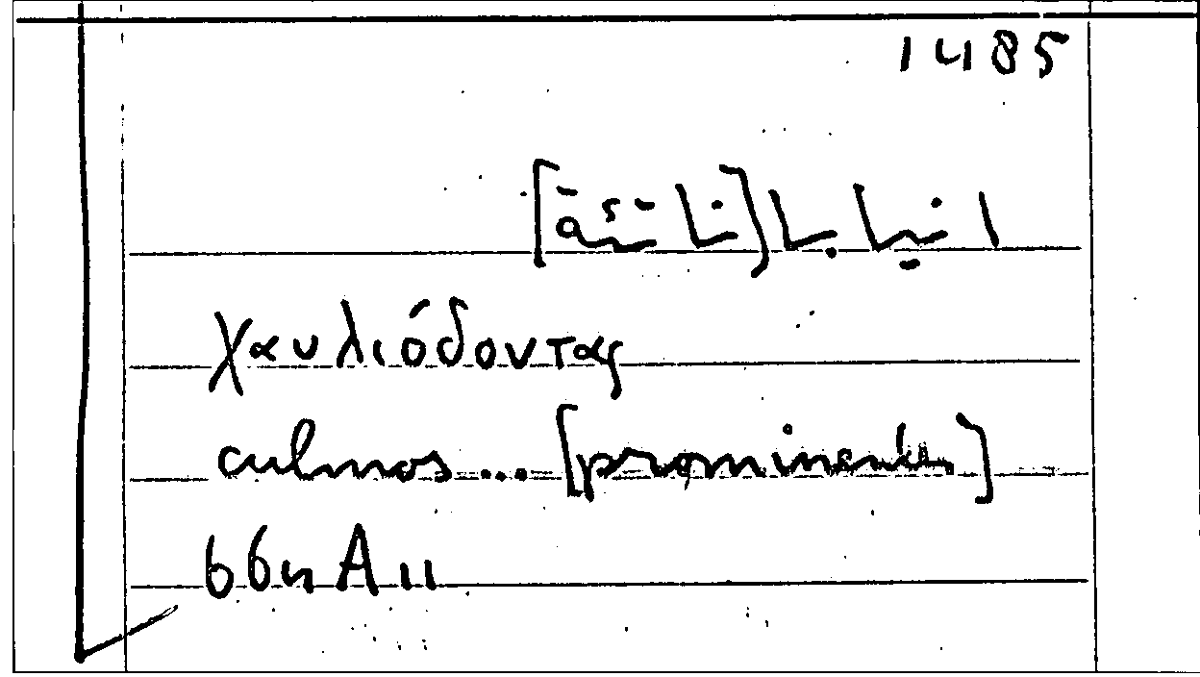 1485
انيابا [ناتئة]
χαυλιόδοντας
culmos... [prominentes]
664 A 11